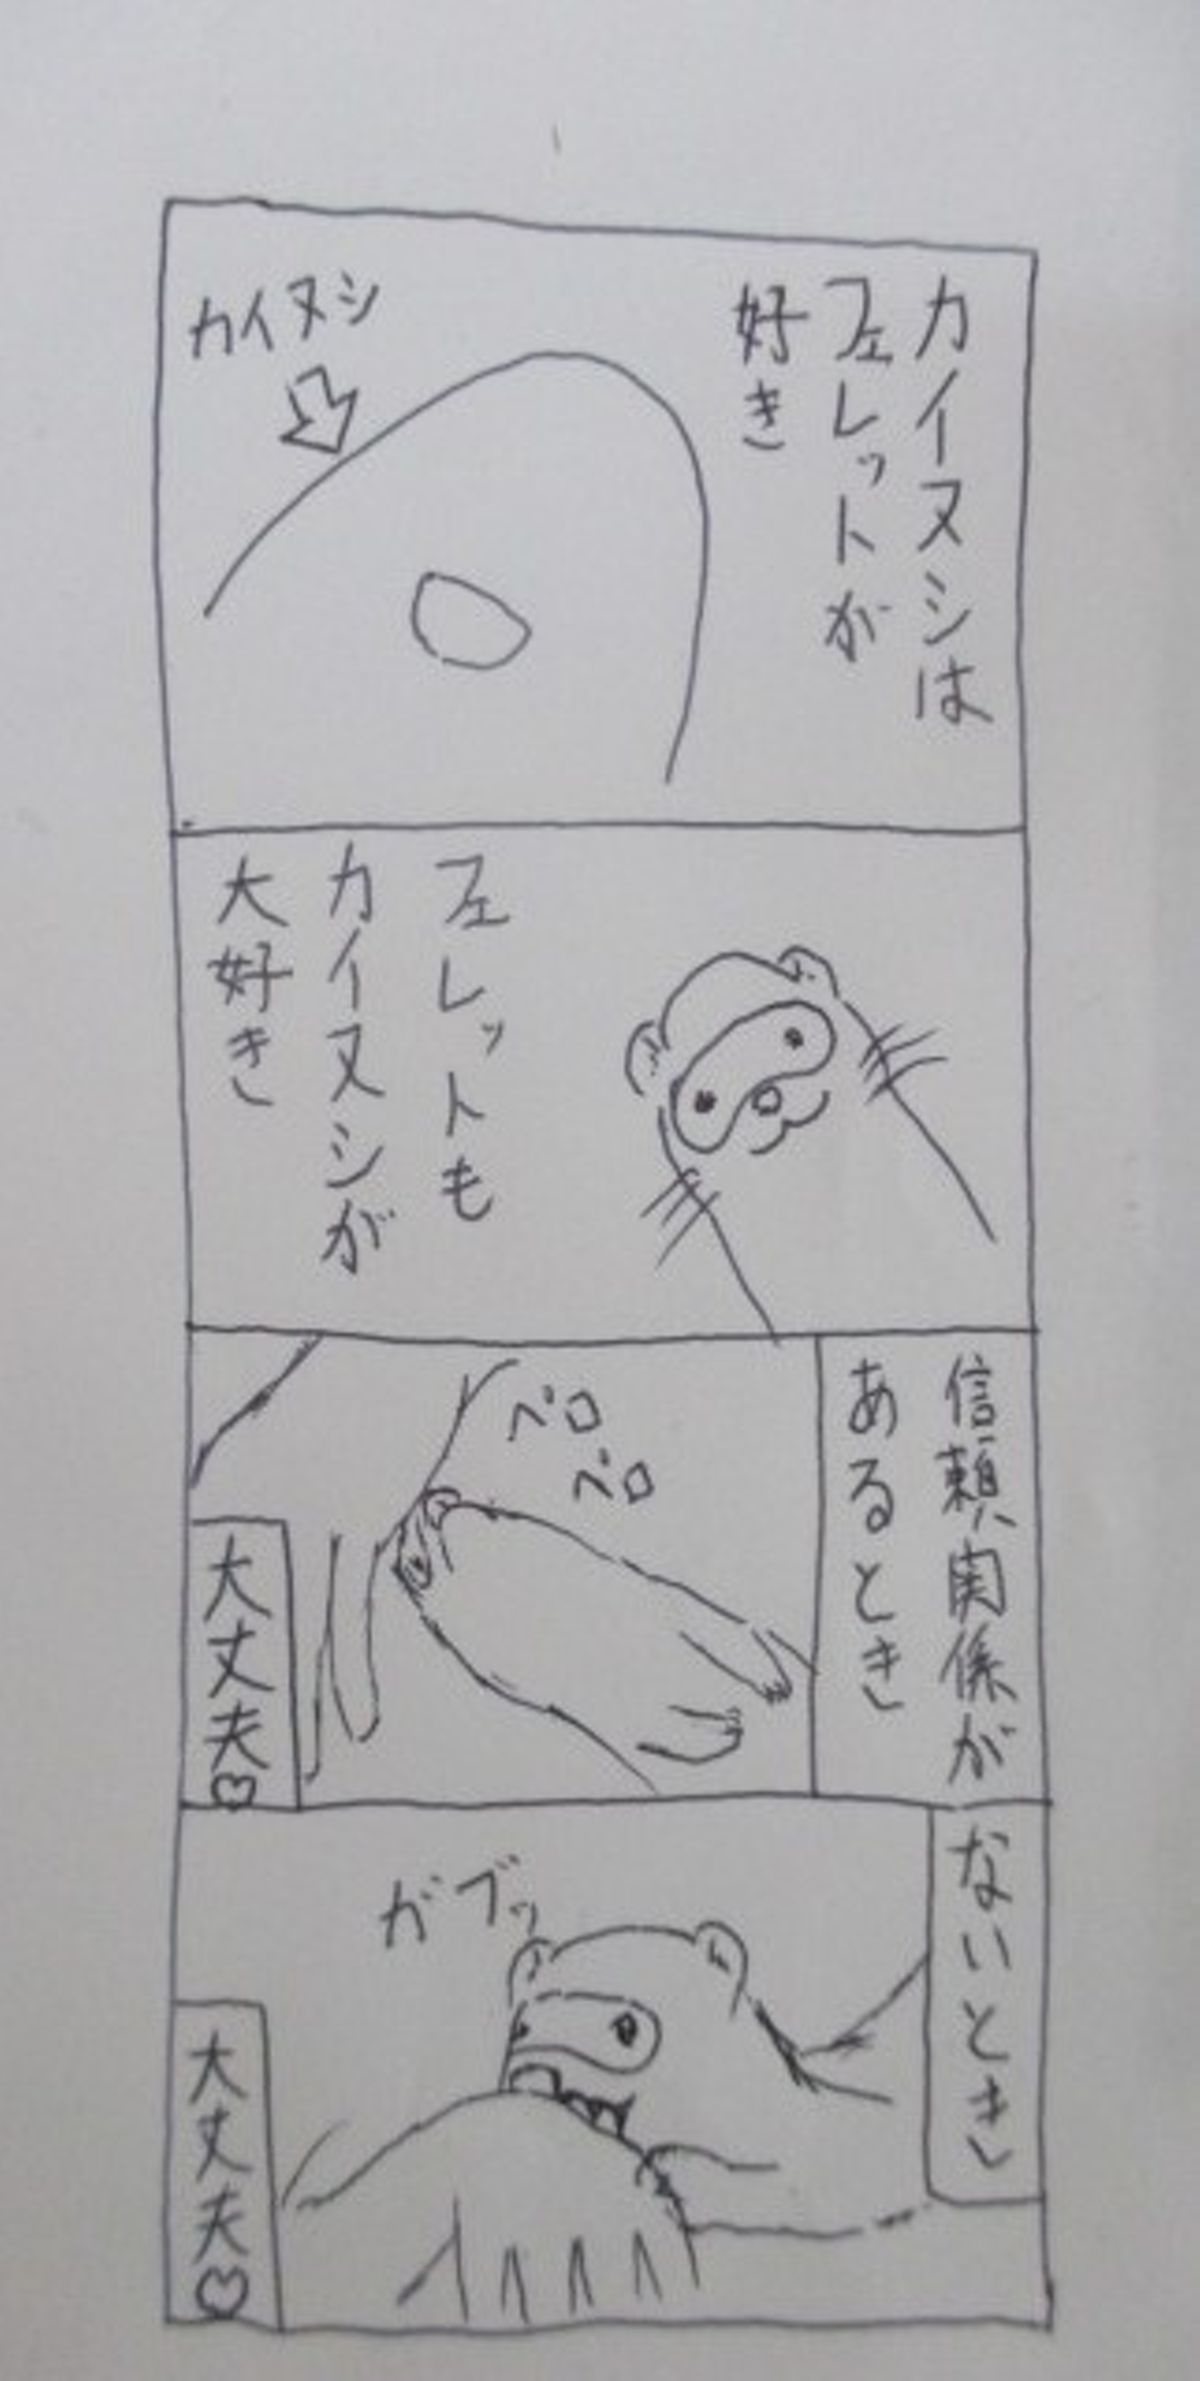 カイヌシは
フェレットが
好き
カイヌシ
フェレットも
カイヌシが
大好き
信頼関係が
あるとき
ペロ
ペロ
大丈夫♡
ないとき
ガブッ
大丈夫♡